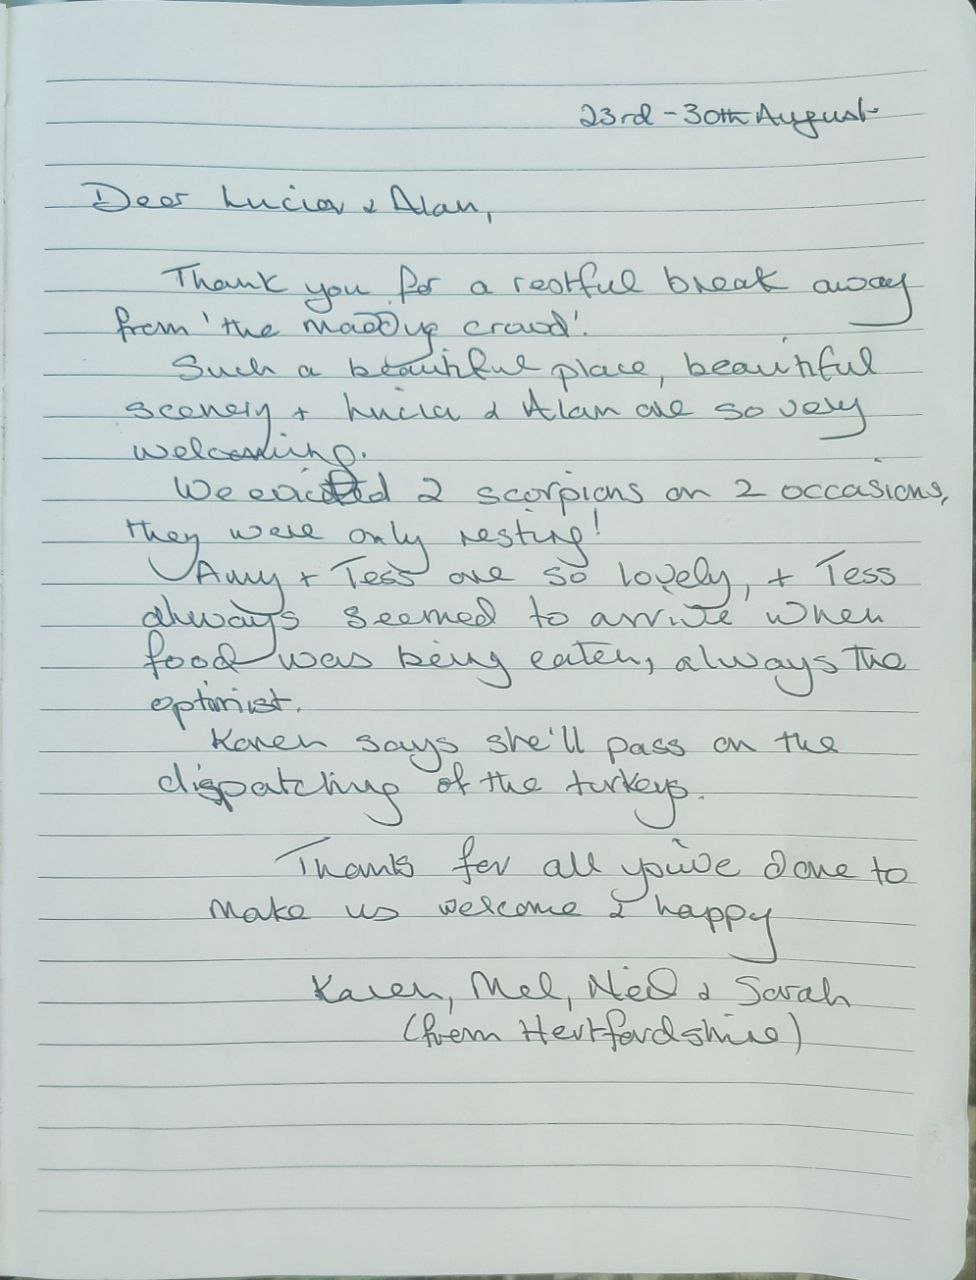 23rd - 30th August
Dear Lucia & Alan,
Thank you for a restful break away
from 'the madding crowd'.
Such a beautiful place, beautiful
scenery + Lucia & Alan are so very
welcoming.
We evicted 2 scorpions on 2 occasions,
they were only resting!
Amy + Tess are so lovely, + Tess
always seemed to arrive when
food was being eaten, always the
optimist.
Karen says she'll pass on the
dispatching of the turkeys.
Thanks for all you've done to
make us welcome & happy
Karen, Mel, Neil & Sarah
(from Hertfordshire)